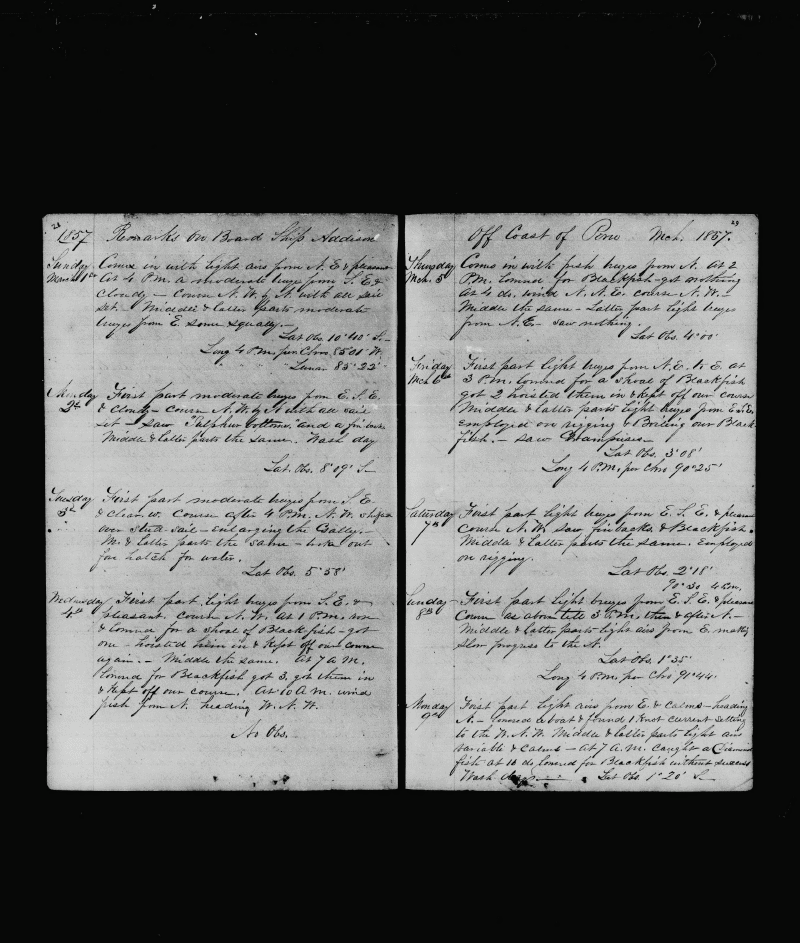 28
1857 Remarks On Board Ship Addison
Sunday Comes in with light airs from N. E. & pleasant
March 1st At 4 P.M. a moderate breeze from S. E. &
cloudy – Course N. W. by N. with all sail
set. Middle & latter parts moderate
breezes from E. some squally. –
Lat Obs. 10° 40' S. –
Long 4 P.m. per Chro. 85° 01' W.
" " " Lunar 85° 22'
Monday First part moderate breezes from E. S. E.
2d & cloudy – Course N. W. by N. with all sail
set – Saw Sulphur bottoms and a finback
Middle & latter parts the same. Wash day
Lat. Obs. 8° 09' S –
Tuesday First part moderate breezes from S. E.
3d & Clear W. Course after 4 P.M. N. W.
over stud-sail – enlarging the Galley. –
M. & latter parts the same – broke out
fore hatch for water.
Lat Obs. 5° 58'
Wednesday First part light breezes from S. E. &
4th pleasant. Course N. W. At 1 P.m.
& lowered for a shoal of Blackfish – got
one – hoisted him in & kept off our course
again. – Middle the same. At 7 A M.
lowered for Blackfish got 3, got them in
& kept off our course. At 10 A m. wind
fresh from N. heading W. N. W.
No Obs.
29
Off Coast of Peru Mch. 1857.
Thursday Comes in with fresh breezes from N. At 2
Mch. 5th P.M. lowered for Blackfish – got nothing
At 4 do. wind N. N. E. course N. W. –
Middle the same – Latter part light breezes
from N. E. – saw nothing.
Lat Obs. 4° 00'
Friday First part light breezes from N. E. to E. at
Mch 6th 3 P.m. lowered for a shoal of Blackfish
got 2 hoisted them in & kept off our course
Middle & latter parts light breezes from
Employed on rigging & Boiling our Black
fish. – saw Grampuses –
Lat Obs. 3° 08'
Long 4 P.M. per Chro 90° 25'
Saturday First part light breezes from E. S. E. & pleasant
7th Course N. W. saw finbacks & Blackfish.
Middle & Latter parts the same. Employed
on rigging.
Lat Obs. 2° 18'
90° 30
Sunday First part light breezes from E. S. E. & pleasant
8th Course as above till 3 P.m. then & after N. –
Middle & latter parts light airs from E. making
slow progress to the N.
Lat Obs. 1° 35'
Long 4 P.m. per Chro 91° 44.
Monday First part light airs from E. & calms – heading
9th N. – lowered a boat & found 1 Knot current setting
to the W. N. W. Middle & latter parts light airs
variable & calms – At 7 A. m. caught a Diamond
fish at 10 do. lowered for Blackfish without success
Wash Lat Obs 1° 20' S –